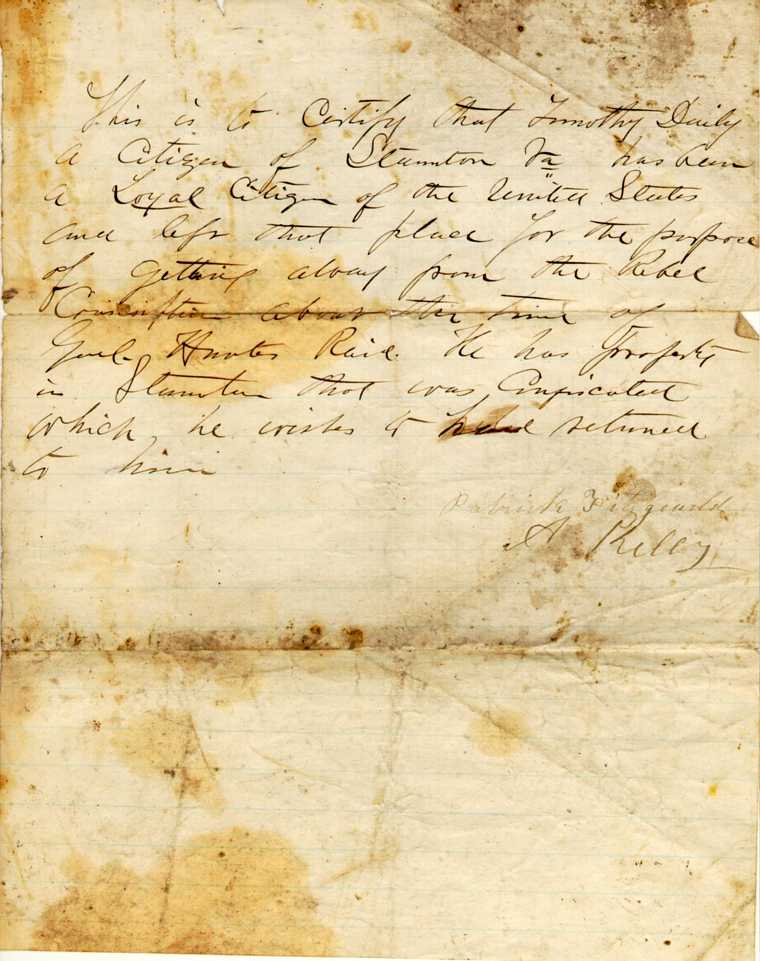 This is to Certify that Timothy Daily
a Citizen of Staunton Va has been
a Loyal Citizen of the United States
and left that place for the purpose
of getting away from the Rebel
Conscription about the time of
Genl. Hunter Raid. He has property
in Staunton that was Confiscated
which he wishes to returned
to him
Patrick Fitzgerald
A Kelly